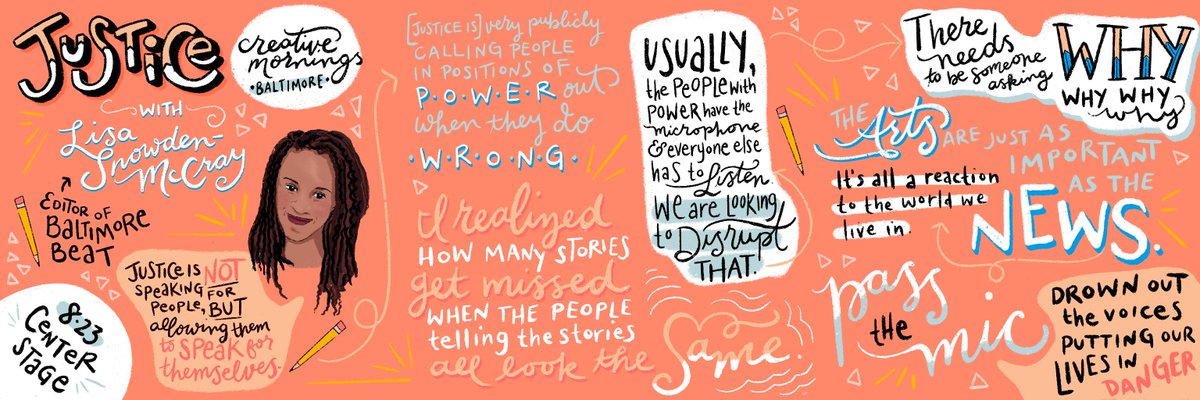 JUSTICE
WITH
Lisa
Snowden-
McCray
EDITOR OF
BALTIMORE
BEAT
creative
mornings
•BALTIMORE•
JUSTICE IS NOT
SPEAKING FOR
PEOPLE, BUT
allowing them
to SPEAK for
themselves.
8.23
CENTER
STAGE
[JUSTICE IS] very publicly
CALLING PEOPLE
IN POSITIONS OF
P.O.W.E.R out
when they do
•W•R•O•N•G•
I realized
HOW MANY STORIES
get missed
WHEN THE PEOPLE
telling the stories
all look the
Same.
USUALLY,
the PEOPLE with
POWER have the
microphone
& everyone else
has to Listen.
We are LOOKING
to DISRUPT
THAT.
There
needs
to be someone
asking
WHY
WHY WHY
why
THE Arts ARE JUST AS
IMPORTANT
AS THE
NEWS.
It's all a reaction
to the world we
live in.
pass
the
mic
DROWN OUT
the voices
PUTTING OUR
LIVES IN
DANGER